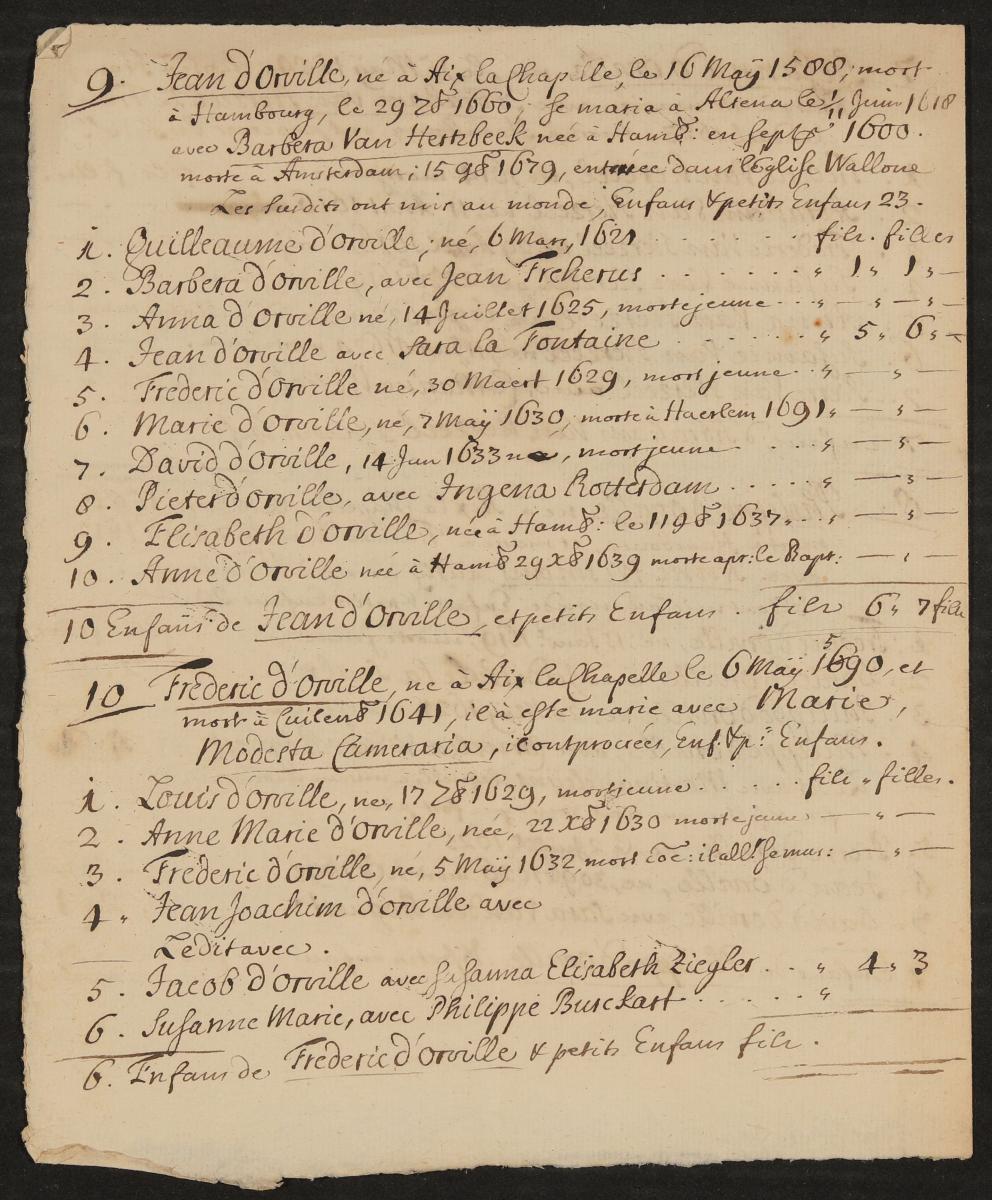 9. Jean d'Orville, né à Aix la Chapelle, le 16 Maÿ 1588; mort
à Hambourg, le 29 7bʳ 1660; se maria à Altena le 1/11 Juin 1618
avec Barbera Van Hertzbeek neé à Hambʳ: en septbʳ 1600.
morte à Amsterdam; 15 9bʳ 1679, enterrée dans l'Eglise Wallone
Les susdits ont mis au monde, Enfans & petits Enfans 23.
1. Guilleaume d'Orville, né, 6 Mars, 1621 . . . . . . filz. filles
2. Barbera d'Orville, avec Jean Freherus . . . . . . " 1 " 1 " —
3. Anna d'Orville né, 14 Juillet 1625, morte jeune . . . " — " — " —
4. Jean d'Orville avec Sara la Fontaine . . . . . . " 5 " 6 " —
5. Frederic d'Orville né, 30 Maert 1629, mort jeune . . " — " —
6. Marie d'Orville, né, 7 Maÿ 1630, morte à Haerlem 1691 " — " —
7. David d'Orville, 14 Jun 1633 né, mort jeune . . . " — " —
8. Pieter d'Orville, avec Ingena Rotterdam . . . . . " — " —
9. Elisabeth d'Orville, neé à Hambʳ: le 11 9bʳ 1637 . . . " — " —
10. Anne d'Orville neé à Hambʳ 29 xbʳ 1639 morte apr: le Bapt: — " —
10 Enfans de Jean d'Orville, et petits Enfans . filz 6 " 7 fille
10 Frederic d'Orville, ne à Aix la Chapelle le 6 Maÿ 1690, 5 et
mort à Cuilenbʳ 1641, il à esté marie avec Marie,
Modesta Cameraria, il ont procrées, Enf. & pᵗˢ Enfans.
1. Louis d'Orville, ne, 17 7bʳ 1629, mort jeune . . . . . filz " filles.
2. Anne Marie d'Orville, née, 22 Xbʳ 1630 morte jeune — " —
3. Frederic d'Orville, né, 5 Maÿ 1632, mort — " —
4 " Jean Joachim d'Orville avec
Ledit avec .
5. Jacob d'Orville avec Susanna Elisabeth Ziegler . . " 4 " 3
6. Susanne Marie, avec Philippe Burckart . . . . . "
6. Enfans de Frederic d'Orville & petits Enfans filz .